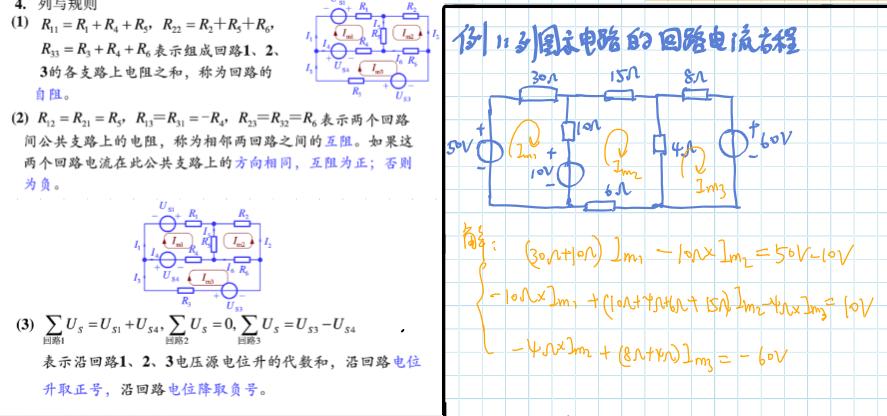 4. 列写规则
(1) R₁₁ = R₁ + R₄ + R₅, R₂₂ = R₂ + R₅ + R₆,
R₃₃ = R₃ + R₄ + R₆ 表示组成回路1、2、
3的各支路上电阻之和，称为回路的
自阻。
(2) R₁₂ = R₂₁ = R₅, R₁₃ = R₃₁ = −R₄, R₂₃ = R₃₂ = R₆ 表示两个回路
间公共支路上的电阻，称为相邻两回路之间的互阻。如果这
两个回路电流在此公共支路上的方向相同，互阻为正；否则
为负。
U_S1 R₁ R₂
I₁ I_m1 R₅ I_m2 I₂
I₄ R₄ I₆ R₆
U_S4 I_m3
I₃ R₃ U_S3
(3) ∑U_S = U_S1 + U_S4, ∑U_S = 0, ∑U_S = U_S3 − U_S4
回路1 回路2 回路3
表示沿回路1、2、3电压源电位升的代数和，沿回路电位
升取正号，沿回路电位降取负号。
例1：列图示电路的回路电流方程
30Ω 15Ω 8Ω
50V + − Im₁ 10Ω Im₂ 4Ω + − 60V
+ 10V − 6Ω Im₃
解：(30Ω+10Ω) Im₁ − 10Ω×Im₂ = 50V−10V
−10Ω×Im₁ + (10Ω+4Ω+6Ω+15Ω) Im₂ −4Ω×Im₃ = 10V
−4Ω×Im₂ + (8Ω+4Ω) Im₃ = −60V